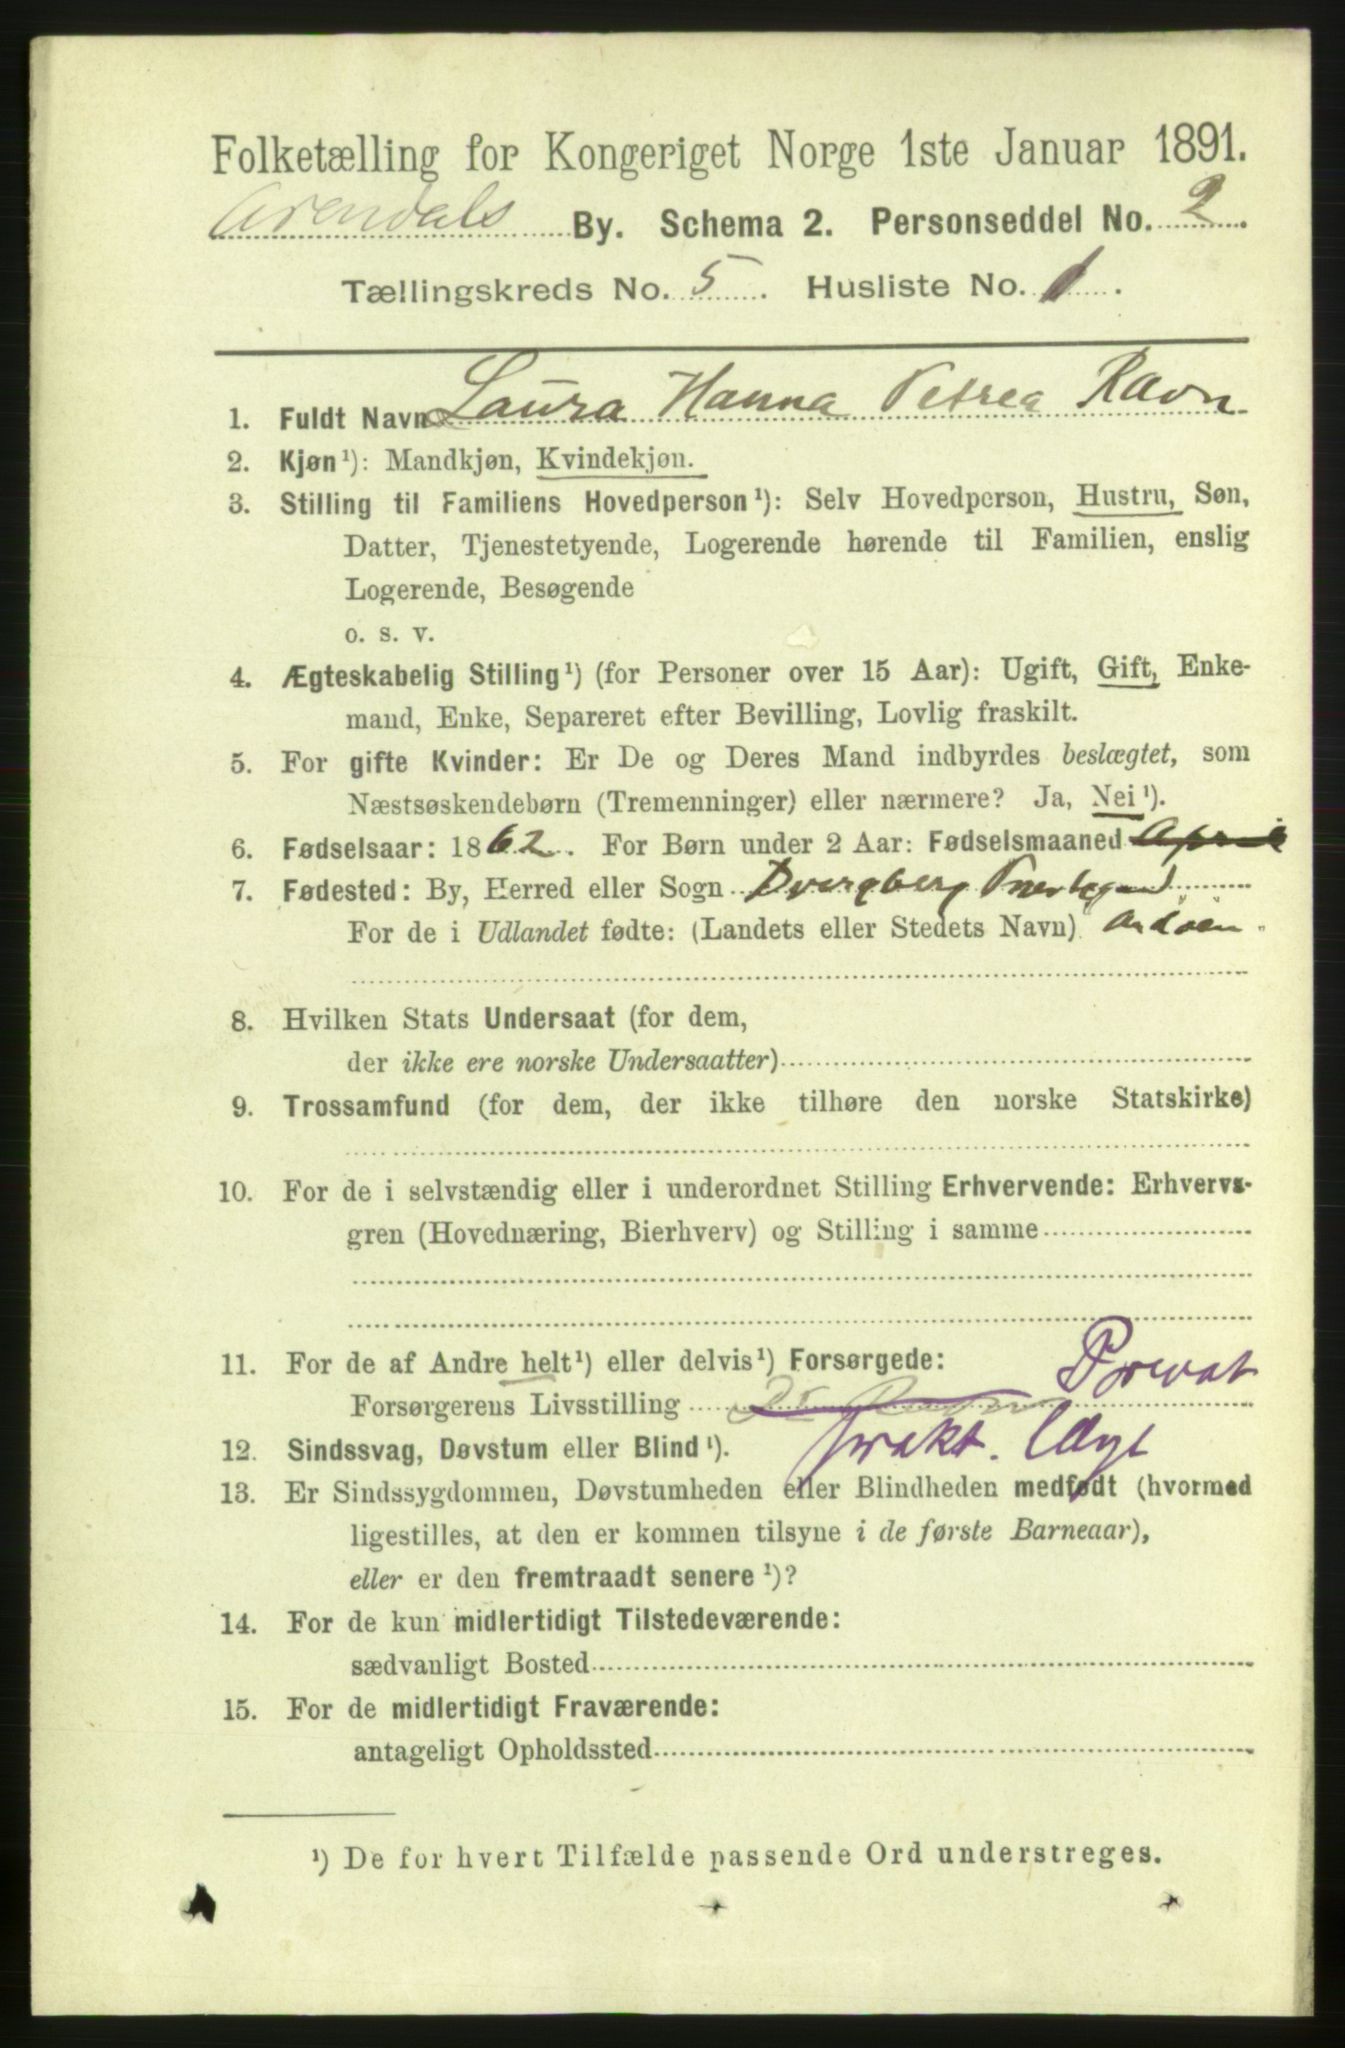 Folketælling for Kongeriget Norge 1ste Januar 1891.
Arendals By. Schema 2. Personseddel No. 2.
Tællingskreds No. 5. Husliste No. 1.
1. Fuldt Navn Laura Hanna Petrea Ravn
2. Kjøn¹): Mandkjøn, Kvindekjøn.
3. Stilling til Familiens Hovedperson¹): Selv Hovedperson, Hustru, Søn,
Datter, Tjenestetyende, Logerende hørende til Familien, enslig
Logerende, Besøgende
o. s. v.
4. Ægteskabelig Stilling¹) (for Personer over 15 Aar): Ugift, Gift, Enke-
mand, Enke, Separeret efter Bevilling, Lovlig fraskilt.
5. For gifte Kvinder: Er De og Deres Mand indbyrdes beslægtet, som
Næstsøskendebørn (Tremenninger) eller nærmere? Ja, Nei¹).
6. Fødselsaar: 1862. For Børn under 2 Aar: Fødselsmaaned April
7. Fødested: By, Herred eller Sogn Dvergberg Prestegjeld
For de i Udlandet fødte: (Landets eller Stedets Navn) Andøen.
8. Hvilken Stats Undersaat (for dem,
der ikke ere norske Undersaatter)
9. Trossamfund (for dem, der ikke tilhøre den norske Statskirke)
10. For de i selvstændig eller i underordnet Stilling Erhvervende: Erhvervs-
gren (Hovednæring, Bierhverv) og Stilling i samme
11. For de af Andre helt¹) eller delvis¹) Forsørgede: Privat
Forsørgerens Livsstilling
12. Sindssvag, Døvstum eller Blind¹). prakt. Læge
13. Er Sindssygdommen, Døvstumheden eller Blindheden medfødt (hvormed
ligestilles, at den er kommen tilsyne i de første Barneaar),
eller er den fremtraadt senere¹)?
14. For de kun midlertidigt Tilstedeværende:
sædvanligt Bosted
15. For de midlertidigt Fraværende:
antageligt Opholdssted
¹) De for hvert Tilfælde passende Ord understreges.